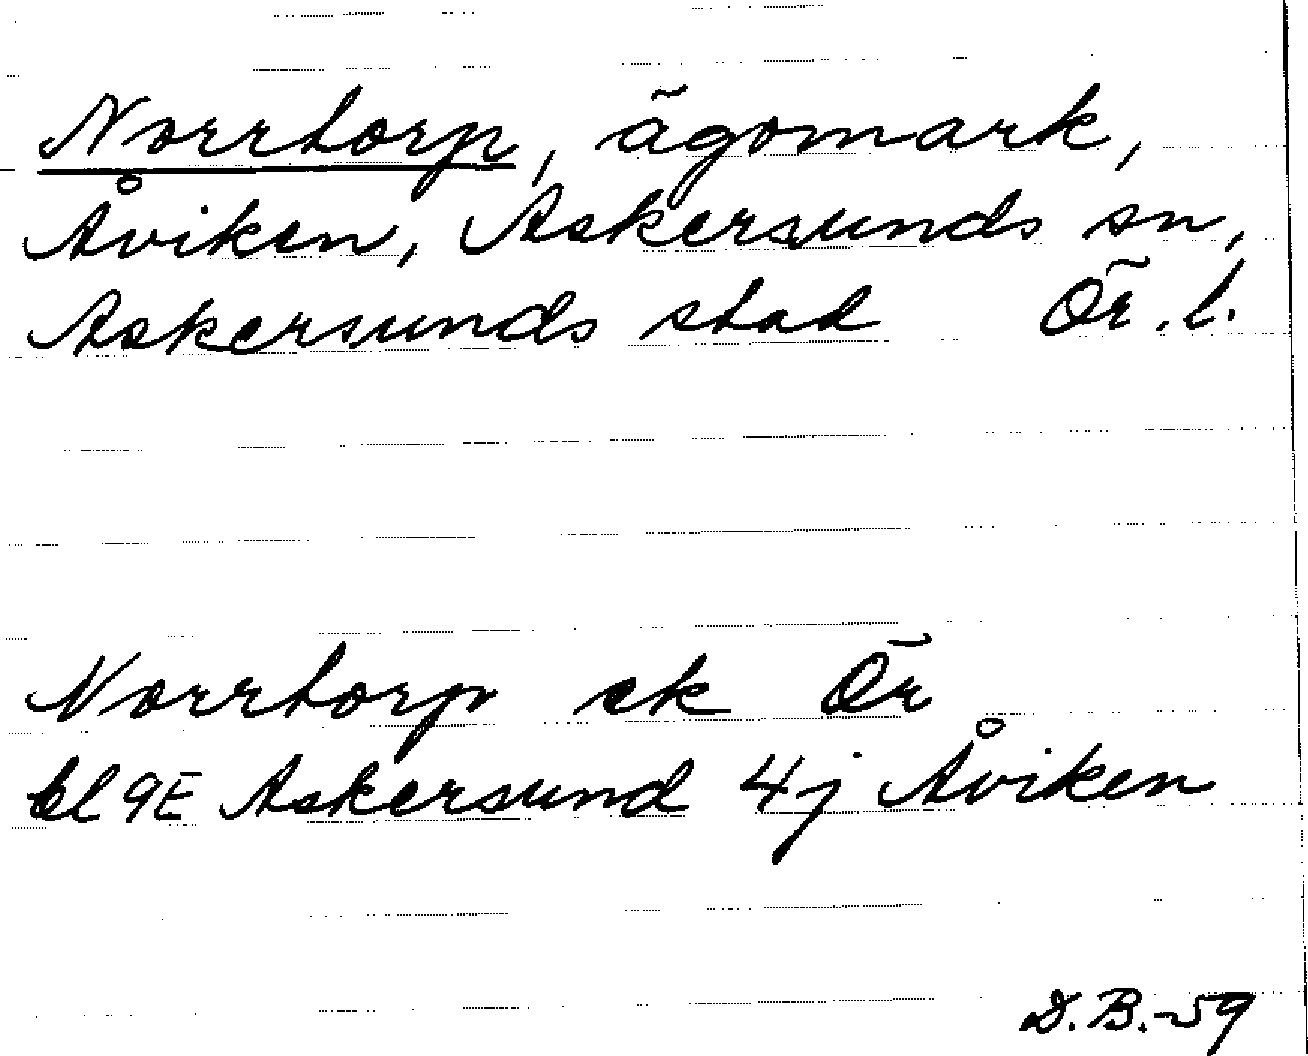 Norrtorp, ägomark,
Åviken, Askersunds sn,
Askersunds stad Ör. l.
Norrtorp ek Ör
bl 9E Askersund 4j Åviken
D.B.-59